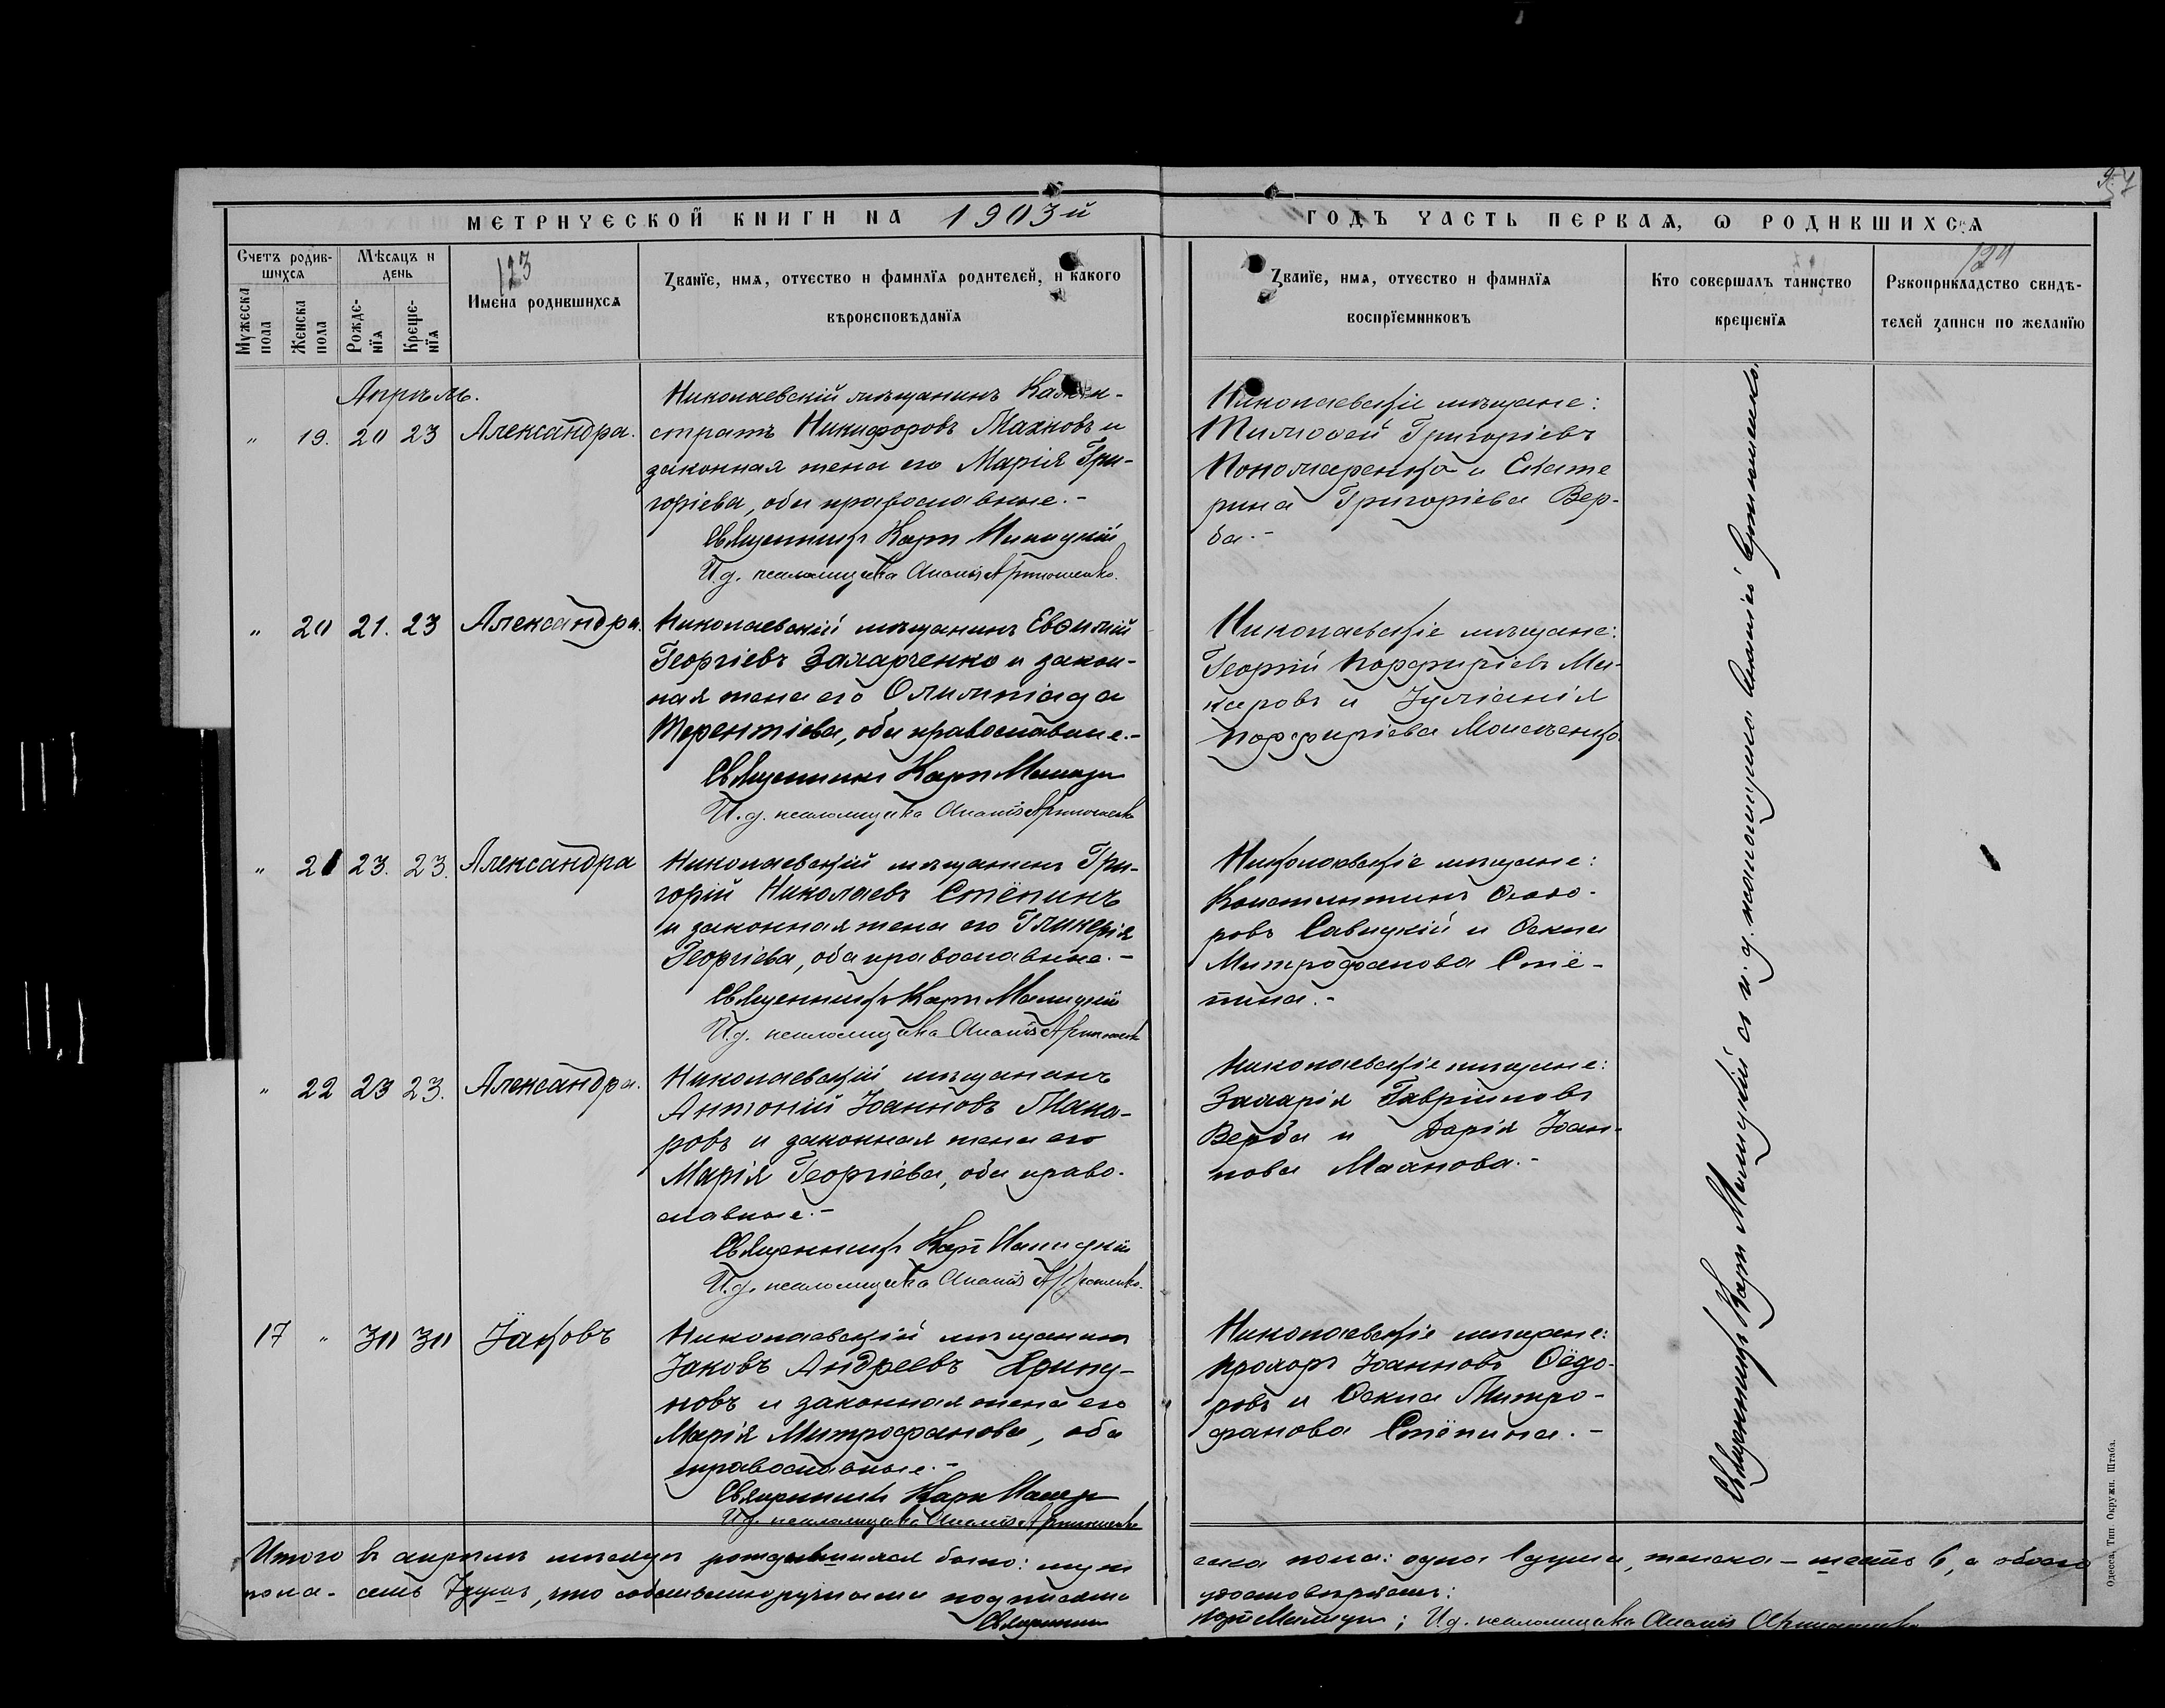 МЕТРИЧЕСКОЙ КНИГИ НА 1903й
ГОДЪ ЧАСТЬ ПЕРВАЯ, Ѡ РОДИВШИХСЯ
Счетъ родив-
шихся
Мужеска
пола
Женска
пола
Мѣсяцъ и
день
Рожде-
нїя
Креще-
нїя
123
Имена родившихся
Званїе, имя, отчество и фамилїя родителей, и какого
вѣроисповѣданїя
Званїе, имя, отчество и фамилїя
воспрїемниковъ
Кто совершалъ таинство
крещенїя
124
Рукоприкладство свидѣ-
телей записи по желанїю
Апрѣль.
" 19. 20 23 Александра.
Николаевскій мѣщанинъ Калли-
стратъ Никифоровъ Махновъ и
законная жена его Марія Гри-
горіева, оба православные.-
Священникъ Карпъ Малицкій
И.д. псаломщика Ананій Артюшенко.
Николаевскіе мѣщане:
Тимоѳей Григоріевъ
Пономаренко и Екате
рина Григоріева Вер-
ба.-
" 20 21. 23 Александра.
Николаевскій мѣщанинъ Евѳимій
Георгіевъ Захарченко и закон-
ная жена его Олимпіада
Терентіева, оба православные.-
Священникъ Карпъ Малицкій
И.д. псаломщика Ананій Артюшенко
Николаевскіе мѣщане:
Георгій Порфиріевъ Ма-
каровъ и Іуліанія
Порфиріева Моисеенко
" 21 23. 23. Александра
Николаевскій мѣщанинъ Гри-
горій Николаевъ Стёпинъ
и законная жена его Гликерія
Георгіева, оба православные.-
Священникъ Карпъ Малицкій
И.д. псаломщика Ананій Артюшенко
Николаевскіе мѣщане:
Константинъ Ѳеодо-
ровъ Савицкій и Ѳекла
Митрофанова Стё-
пина.-
" 22 23 23. Александра.
Николаевскій мѣщанинъ
Антоній Іоанновъ Мака-
ровъ и законная жена его
Марія Георгіева, оба право-
славные.-
Священникъ Карпъ Малицкій
И.д. псаломщика Ананій Артюшенко.
Николаевскіе мѣщане:
Захарія Гавріиловъ
Верба и Дарія Іоан-
нова Махнова.-
17 " 30 30 Іаковъ
Николаевскій мѣщанинъ
Іаковъ Андреевъ
новъ и законная жена его
Марія Митрофанова, оба
православные.-
Священникъ Карпъ Малицкій
И.д. псаломщика Ананій Артюшенко
Николаевскіе мѣщане:
Прохоръ Іоанновъ Ѳёдо-
ровъ и Ѳекла Митро-
фанова Стёпина.-
Священникъ Карпъ Малицкій съ и.д. псаломщика Ананіею Артюшенко.
Итого въ апрѣлѣ мѣсяцѣ родившихся было: муже
ска пола: одна 1 душа, женска - шесть 6, а обоего
пола - семь 7 душъ, что собственноручными подписями
удостовѣряемъ:
Священникъ
Карпъ Малицкій; И.д. псаломщика Ананій Артюшенко
Одесса, Тип. Окружн. Штаба.